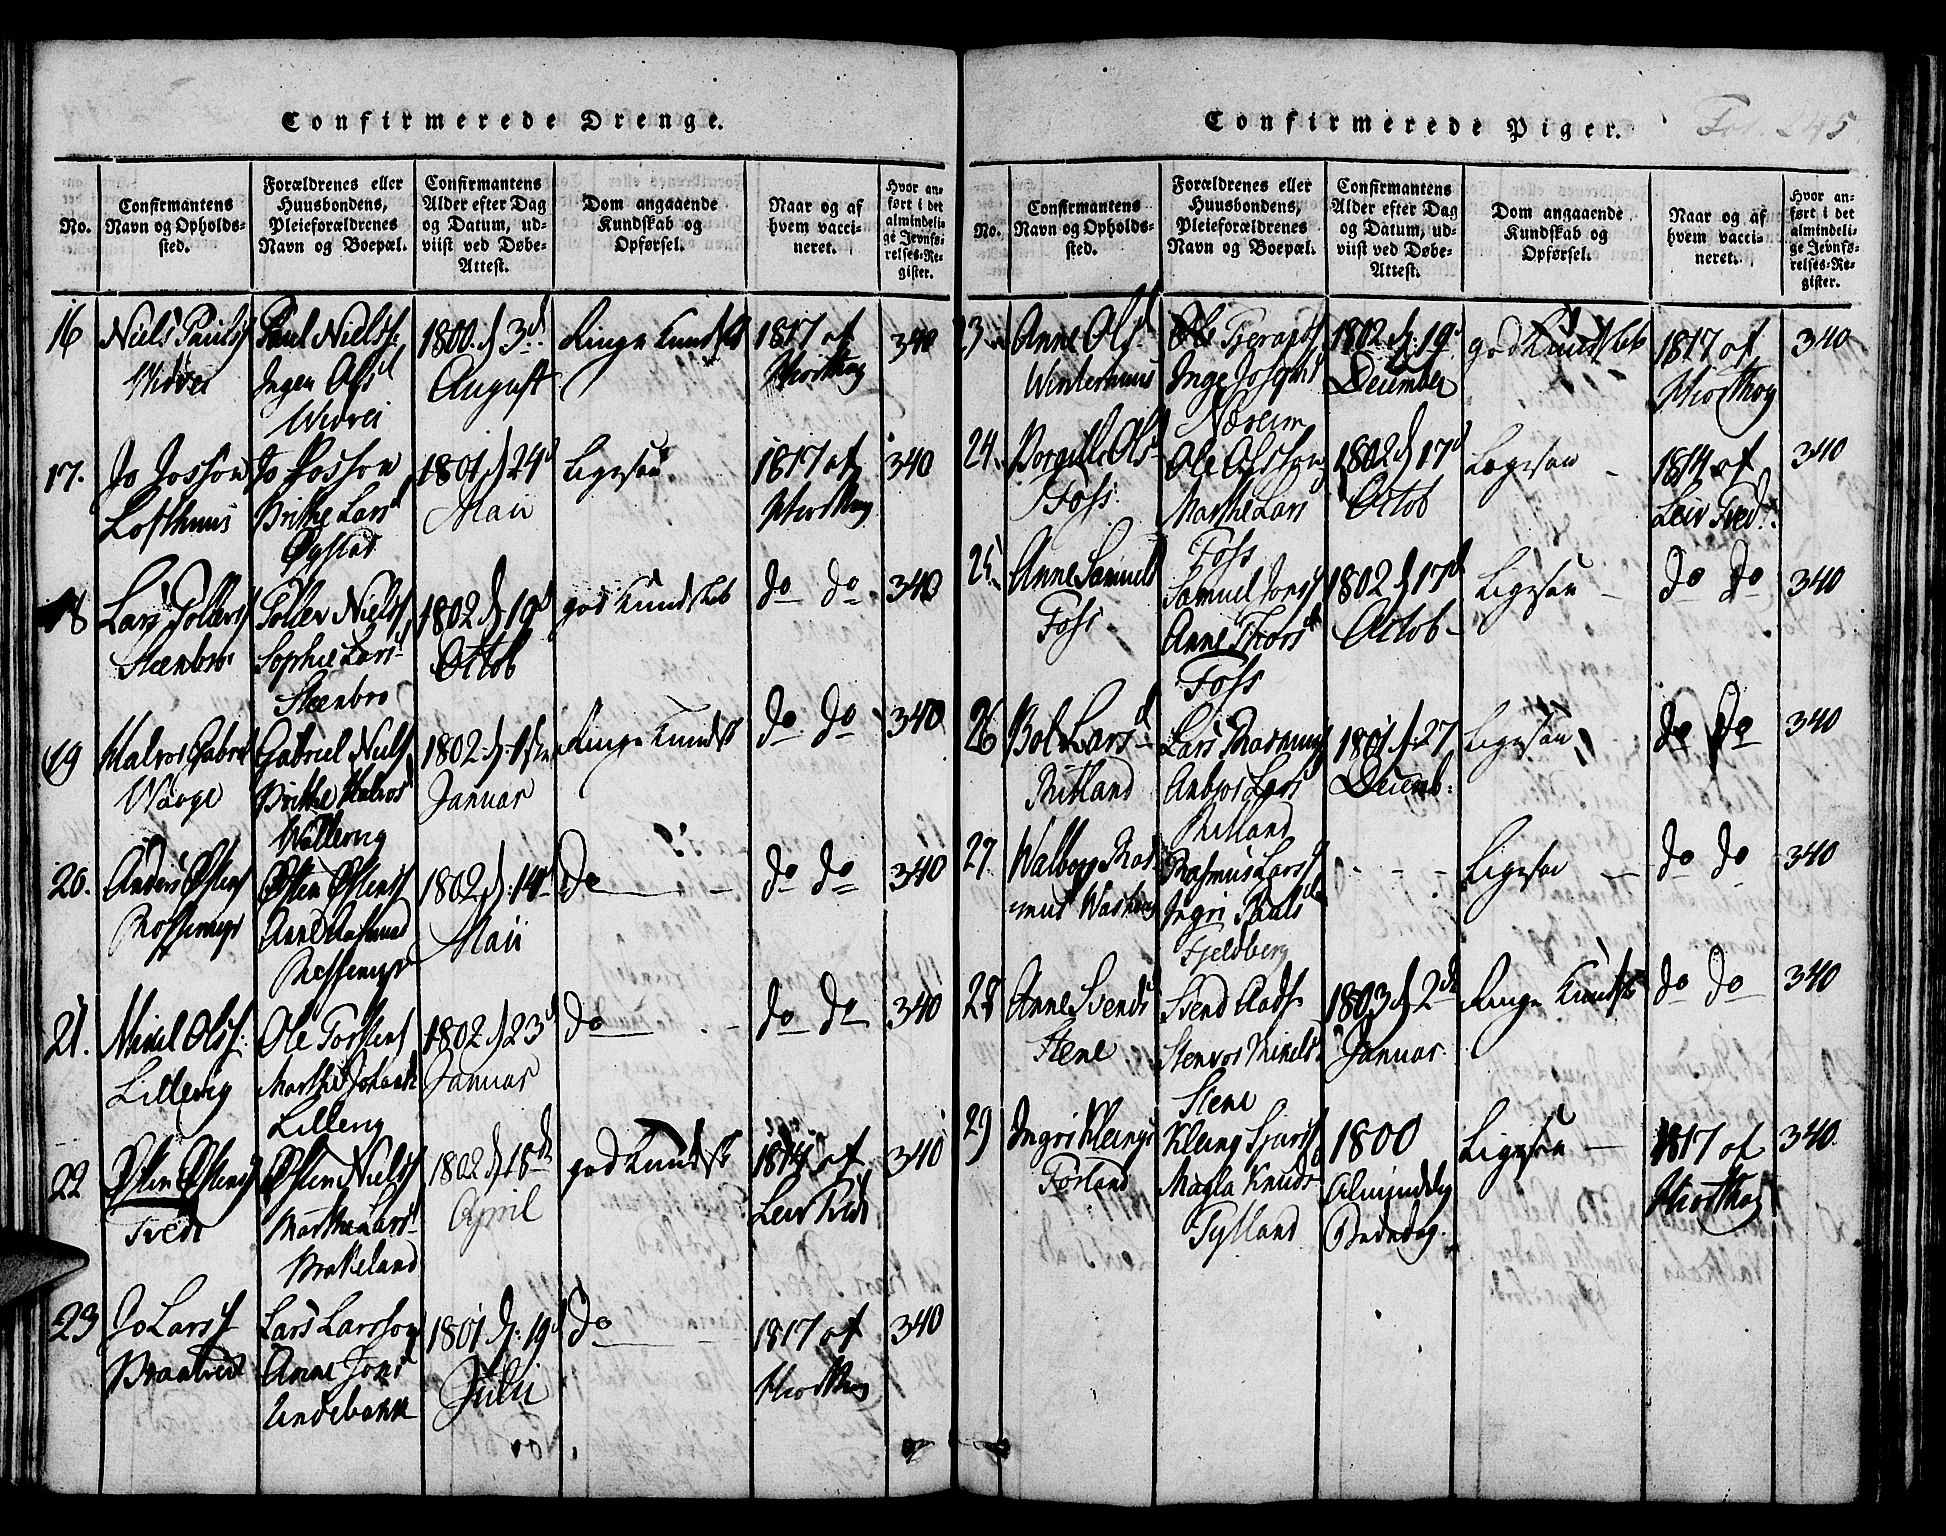 Confirmerede Drenge.
No.
Confirmantens
Navn og Opholds-
sted.
Forældrenes eller
Huusbondens,
Pleieforældrenes
Navn og Boepæl.
Confirmantens
Alder efter Dag
og Datum, ud-
viist ved Døbe-
Attest.
Dom angaaende
Kundskab og
Opførsel.
Naar og af
hvem vacci-
neret.
Hvor an-
ført i det
almindeli-
ge Jevnfø-
relses-Re-
gister.
16
Niels Pauls
Widvei
Paul Niels
Ingen Ols
Widvei
1800. d 3d.
August
Ringe Kundsk
1817 af
Hiorthog
340
17.
Jo Josson
Lofthuus
Jo Josson
Brithe Lars
Øystad
1801 d 24d
Maii
Ligesaa
1817 af
Hiorthog
340
18
Lars Tollevs
Steenbro
Tollev Niels
Sophie Lars
Steenbro
1802 d 10d
Octob
god Kundskab
do do
340
19
Halvor Gabri
Waage
Gabriel Niels
Brithe Halvor
Wollevig
1802. d. 1ste
Januar
Ringe Kundsk
do do
340
20.
Anders Østens
Rossemyr
Østen Østens
Anne Aasmund
Rossemyr
1802 d: 14d
Maii
do
do do
340
21.
Mikel Ols
Lillevig
Ole Torstens
Marthe
Lillevig
1802 d 23d
Januar
do
do do
340
22
Østen Østens
Tvedt
Østen Niels
Marthe Lars
Brakeland
1802 d 18de
April
god Kundsk
1814 af
Leir Tvedt
340
23
Jo Lars
Braatvedt
Lars Larsson
Anne Jons
Lindebekk
1801 d: 19d
Julii
do
1817 af
Hiorthog
340
Confirmerede Piger.
Fol. 245
No.
Confirmantens
Navn og Opholds-
sted.
Forældrenes eller
Huusbondens,
Pleieforældrenes
Navn og Boepæl.
Confirmantens
Alder efter Dag
og Datum, ud-
viist ved Døbe-
Attest.
Dom angaaende
Kundskab og
Opførsel.
Naar og af
hvem vacci-
neret.
Hvor an-
ført i det
almindeli-
ge Jevnfø-
relses-Re-
gister.
23
Anne Ols
Winterhuus
Ole
Inge
Næreim
1802 d: 19d
December
god Kundskab
1817 af
Hiorthog
340
24.
Borgille Ols
Foss
Ole Olsson
Marthe Lars
Foss
1802 d 17d
Octob
Ligesaa
1814 af
Leir Tvedt
340
25.
Anne Samuels
Foss
Samuel Jons
Anne Thors
Foss
1802 d 17d
Octob
Ligesaa
do do
340
26
Bol Lars
Ritland
Lars Rasmus
Anbjor Lars
Ritland
1801 d. 27
Decemb:
Ligesaa
do do
340
27
Walborg Ras
mus
Rasmus Lars
Ingri Pauls
Fjeldberg
Ligesaa
do do
340
28
Anne Svends
Stene
Svend Aads
Stenvor Mikels
Stene
1803 d 2de
Januar
Ringe Kundsk
do do
340
29
Ingri Kleings
Førland
Kleing Sjurs
Magla Knuds
Tylland
1800
Almindelig
Bededag.
Ligesaa
1817 af
Hiorthog
340